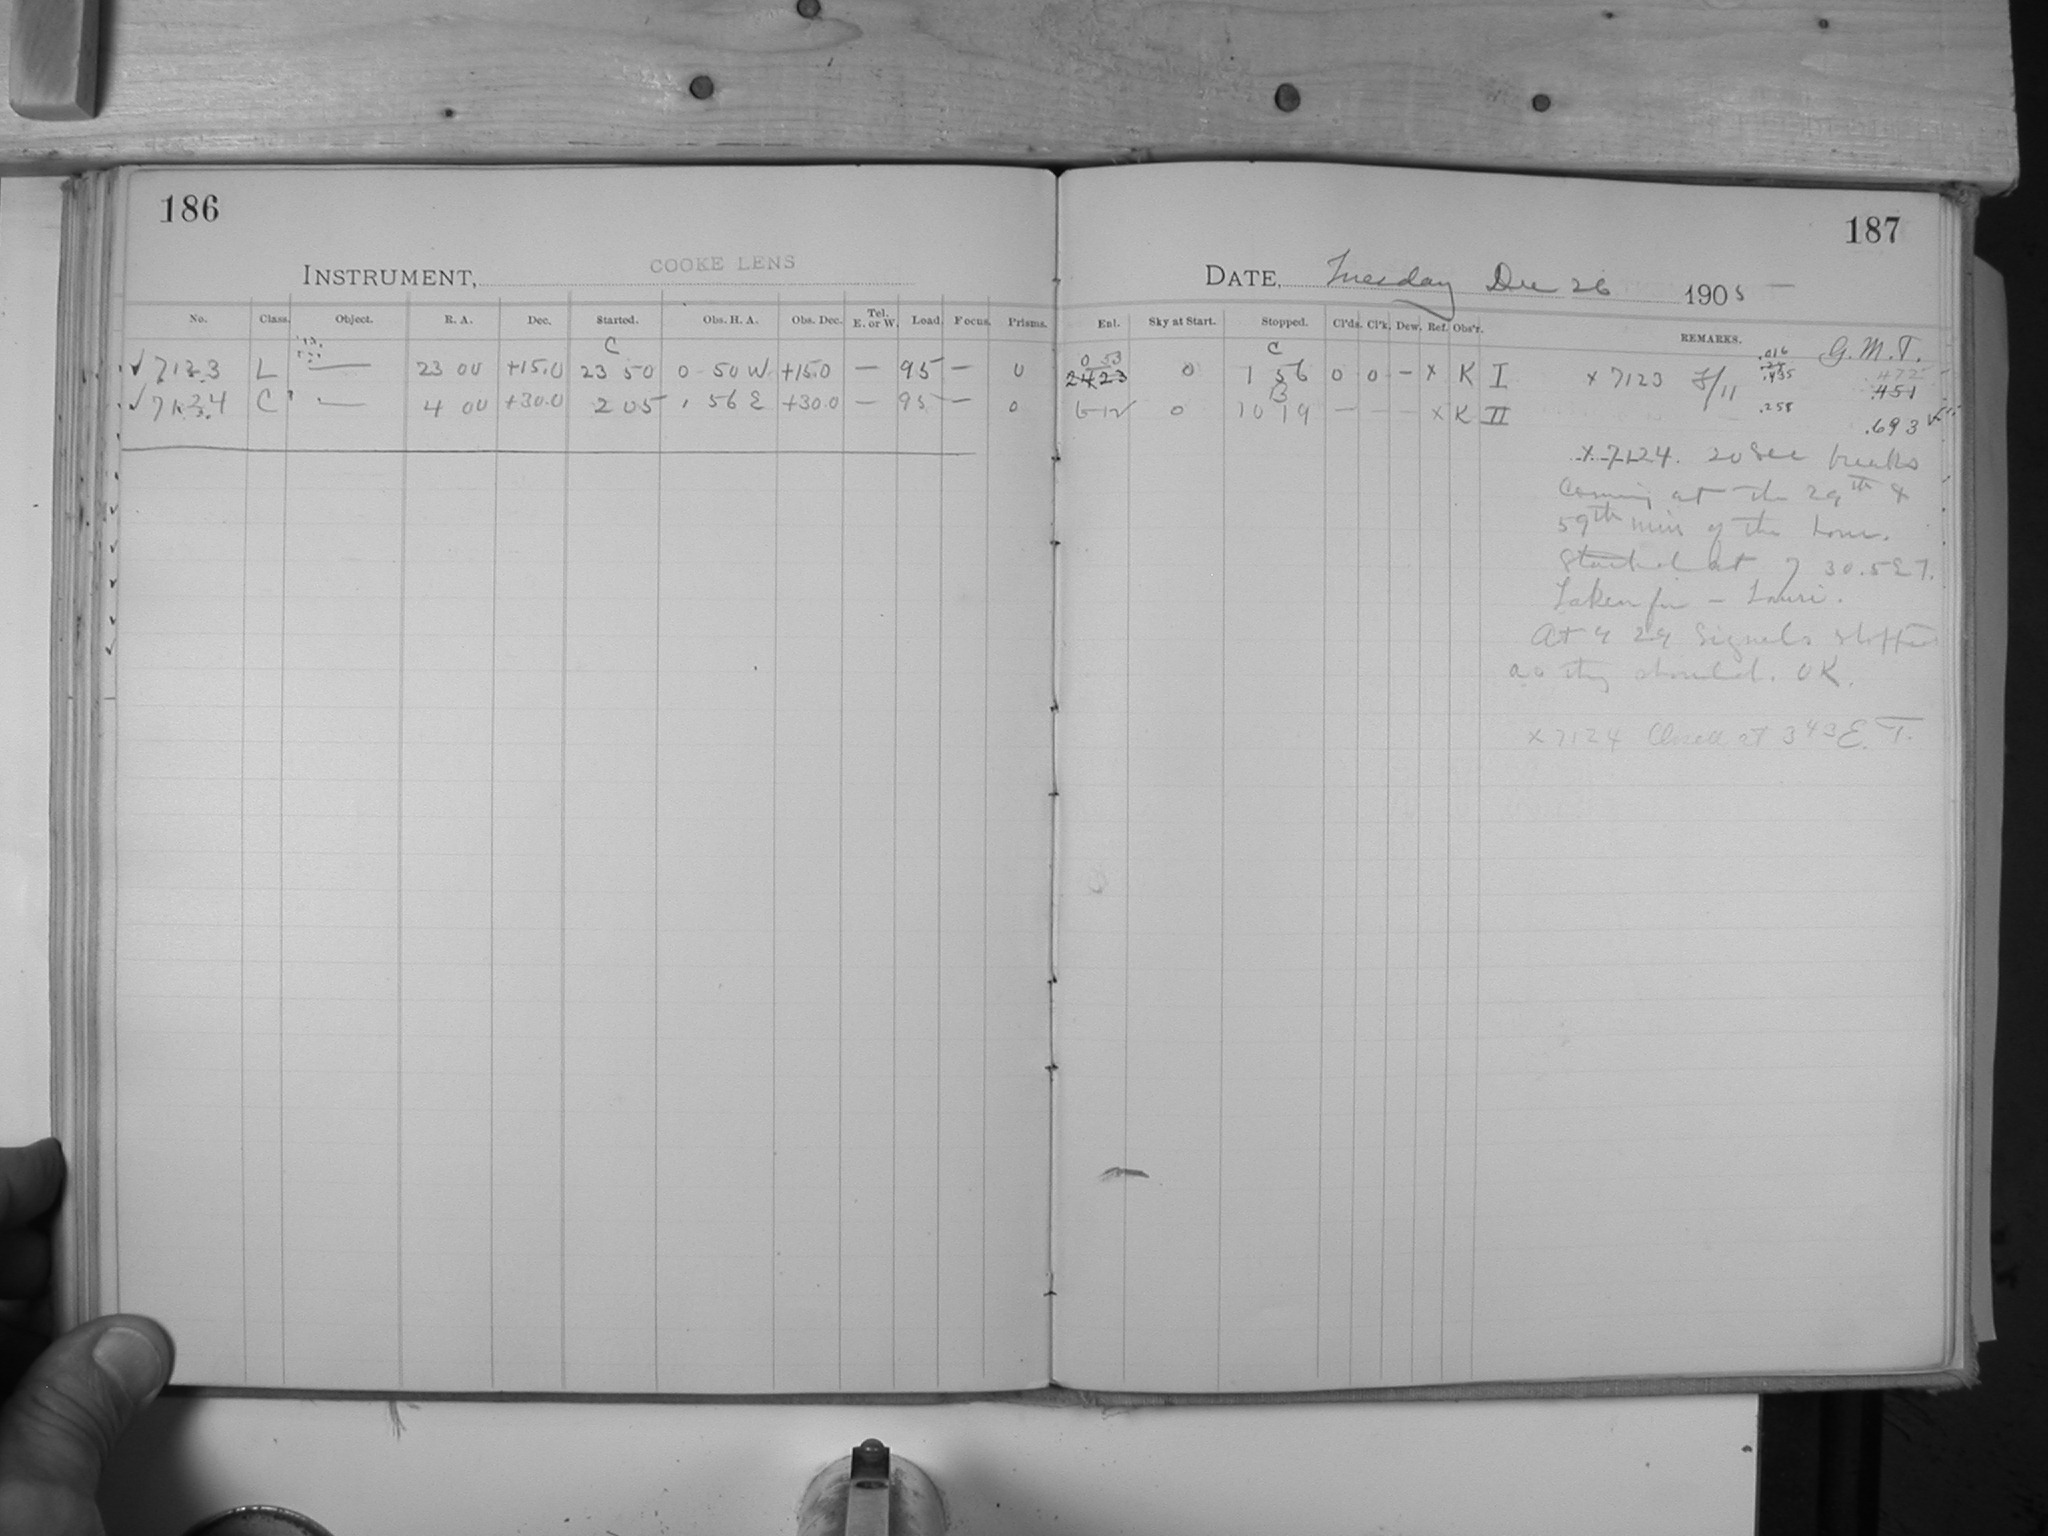 186
INSTRUMENT, COOKE LENS
No. Class. Object. R. A. Dec. Started. Obs. H. A. Obs. Dec. Tel. E. or W. Load. Focus. Prisms.
C
✓ 7123 L — 23 00 +15.0 23 50 0 50 W +15.0 — 95 — 0
✓ 7124 C — 4 00 +30.0 2 05 1 56 E +30.0 — 95 — 0
187
DATE, Tuesday Dec 26 1905
Enl. Sky at Start. Stopped. Cl'ds. Cl'k. Dew. Ref. Obs'r. REMARKS.
G. M. T.
0 53 C .016
2423 0 1 56 0 0 — x K I x 7123 F/11 .435 .451
B .258
0 10 19 — — — x K II .693
x 7124. 20 sec breaks
Coming at the 29th &
59th min of the hour.
Started at 7 30.5 E T.
Taken for —
At 9 29 signals stopped
as they should. OK.
x 7124 Closed at 3 43 E. T.